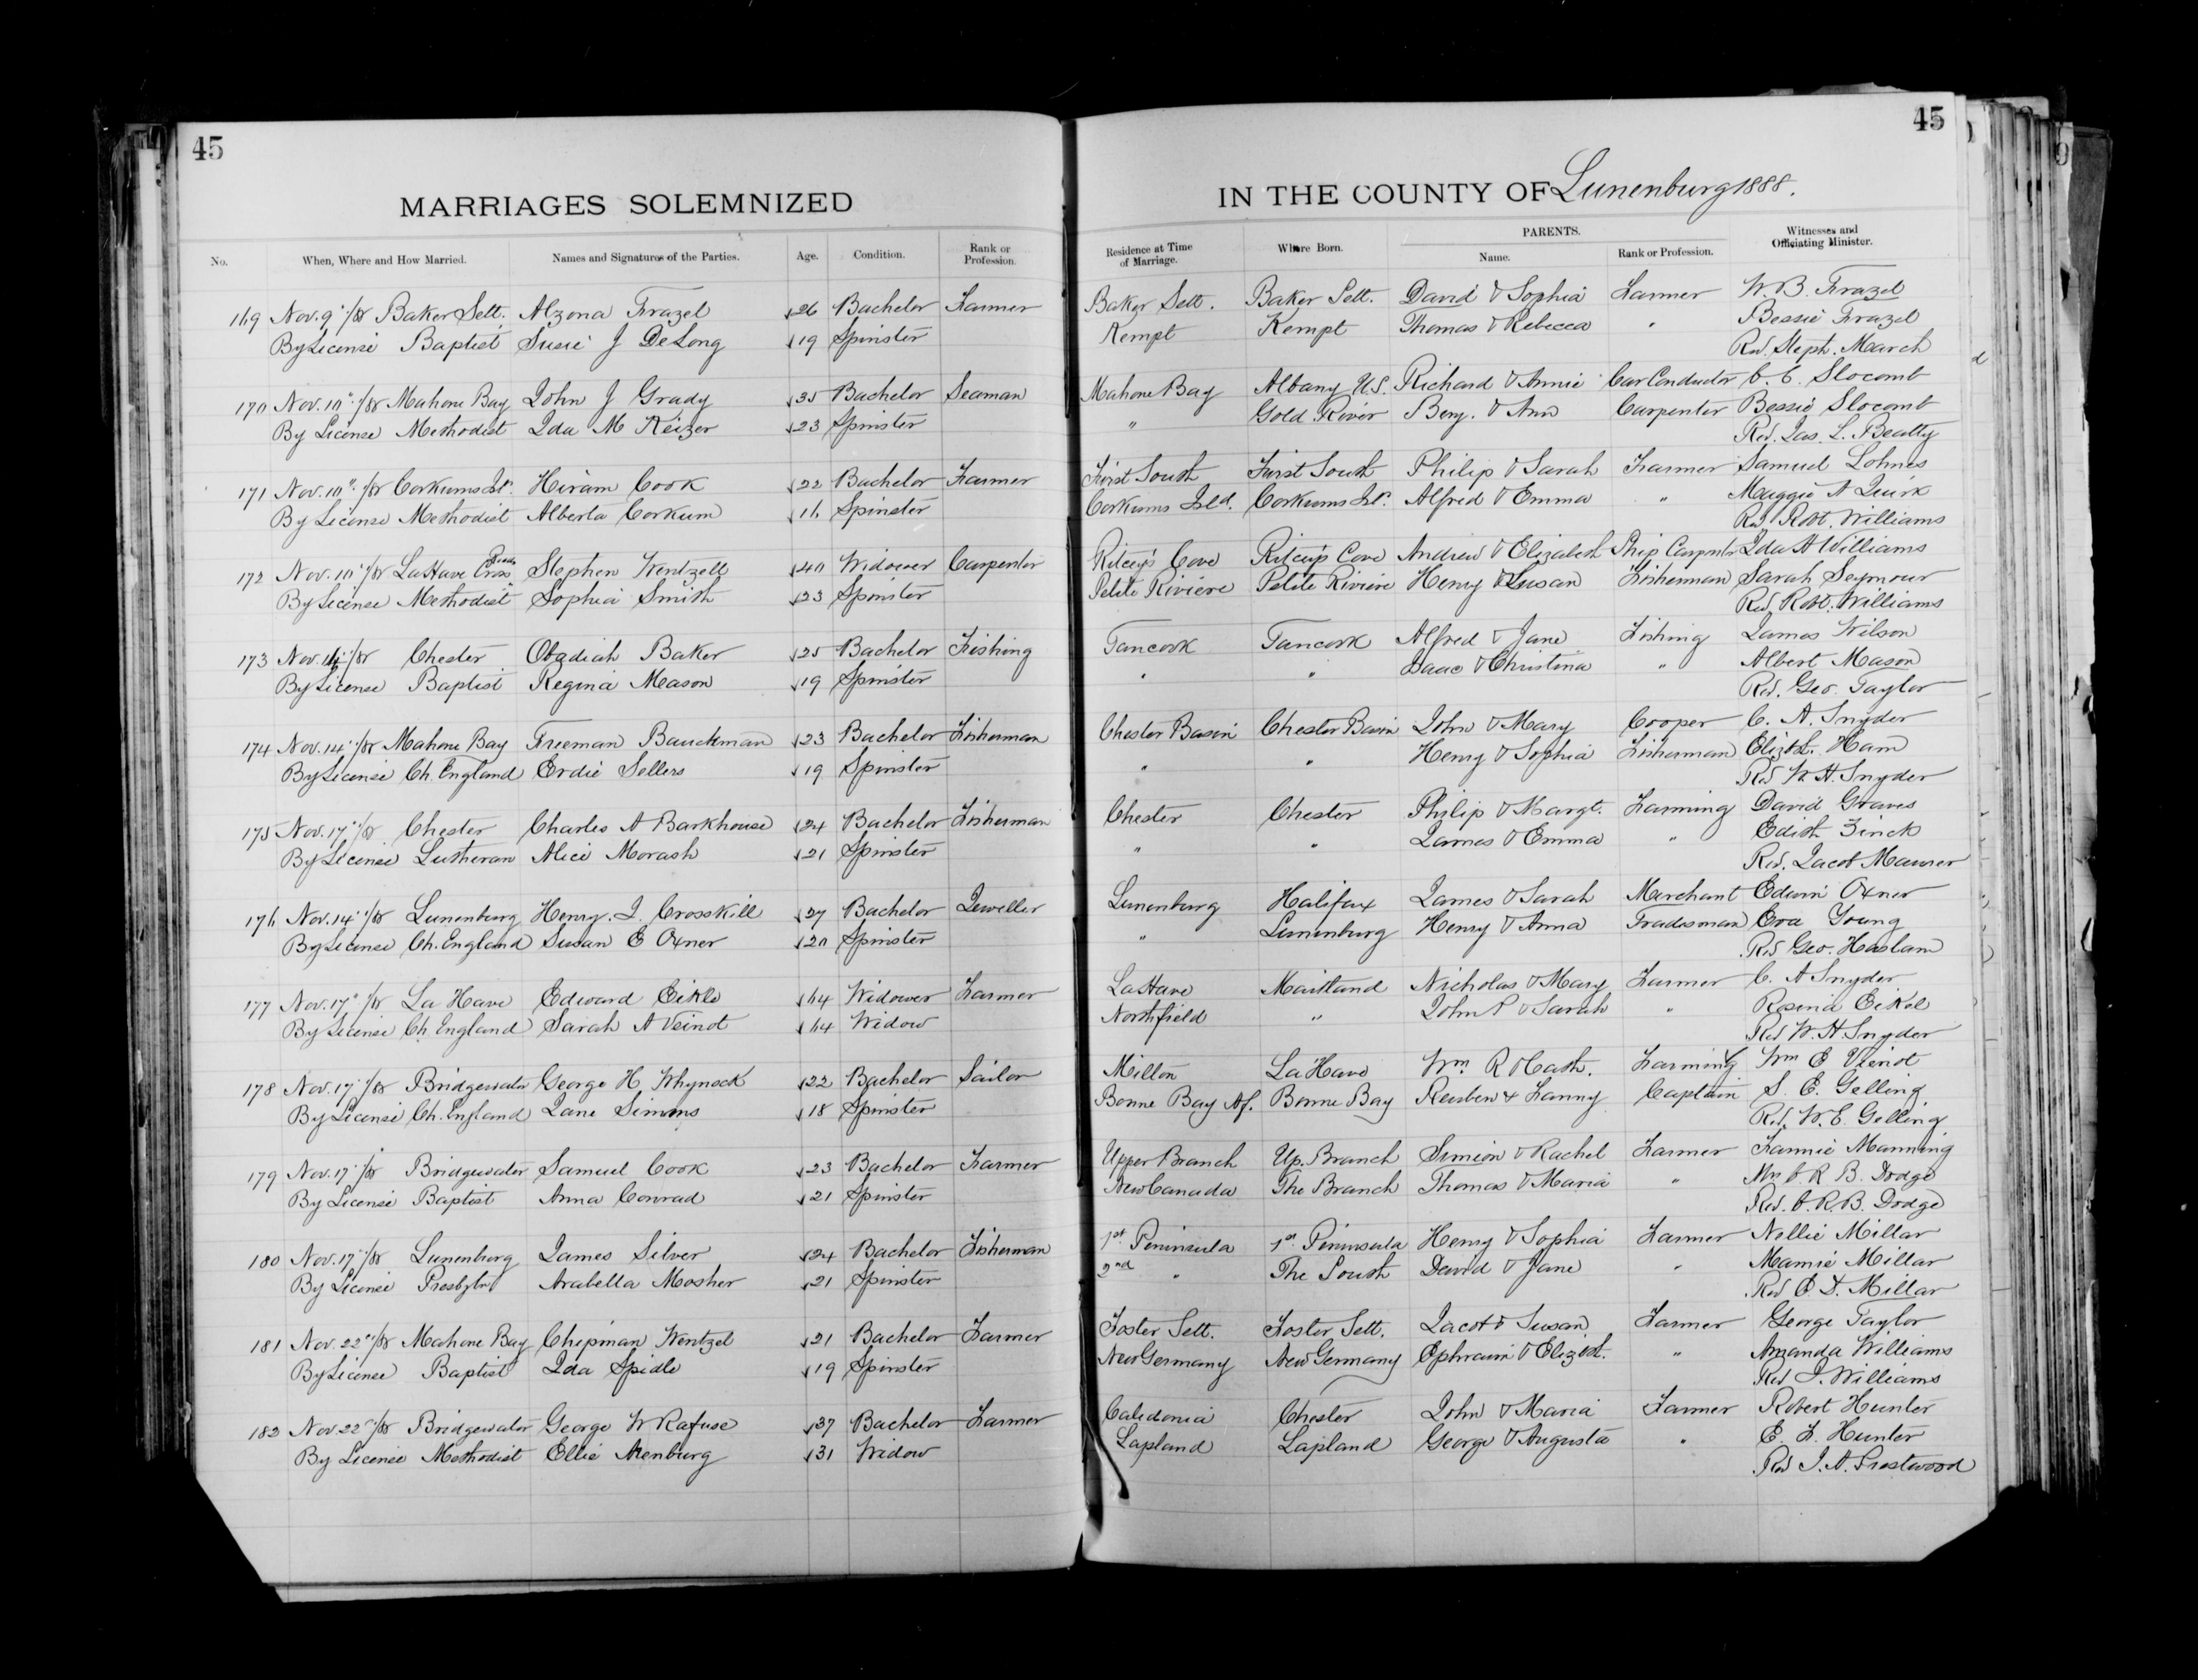 45
45
MARRIAGES SOLEMNIZED
IN THE COUNTY OF Lunenburg 1888.
No. When, Where and How Married. Names and Signatures of the Parties. Age. Condition. Rank or Profession. Residence at Time of Marriage. Where Born. PARENTS. Name. Rank or Profession. Witnesses and Officiating Minister.
169 Nov. 9"/88 Baker Sett. Alzona Frazel 26 Bachelor Farmer Baker Sett. Baker Sett. David & Sophia Farmer W. B. Frazel
By License Baptist Susie J DeLong 19 Spinster Kempt Kempt Thomas & Rebecca " Bessie Frazel
Rev. Steph. March
170 Nov. 10"/88 Mahone Bay John J Grady 35 Bachelor Seaman Mahone Bay Albany U.S. Richard & Annie Car Conductor C. E. Slocomb
By License Methodist Ida M Keizer 23 Spinster " Gold River Benj. & Ann Carpenter Bessie Slocomb
Rev. Jas. L. Beatty
171 Nov. 10"/88 Corkums Isl. Hiram Cook 22 Bachelor Farmer First South First South Philip & Sarah Farmer Samuel Lohnes
By License Methodist Alberta Corkum 16 Spinster Corkums Isld. Corkums Isl. Alfred & Emma " Maggie A Quirk
Rev. Robt. Williams
172 Nov. 10"/88 LaHave Stephen Wentzell 40 Widower Carpenter Ritcey's Cove Ritcey's Cove Andrew & Elizabeth Ship Carpenter Ida A Williams
By License Methodist Sophia Smith 23 Spinster Petite Riviere Petite Riviere Henry & Susan Fisherman Sarah Seymour
Rev. Robt. Williams
173 Nov. /88 Chester Obadiah Baker 25 Bachelor Fishing Tancook Tancook Alfred & Jane Fishing James Wilson
By License Baptist Regina Mason 19 Spinster " " Isaac & Christina " Albert Mason
Rev. Geo. Taylor
174 Nov. 14"/88 Mahone Bay Freeman Bauckman 23 Bachelor Fisherman Chester Basin Chester Basin John & Mary Cooper C. A. Snyder
By License Ch. England Erdie Sellers 19 Spinster " " Henry & Sophia Fisherman Elizth. Ham
Rev W. H. Snyder
175 Nov. 17"/88 Chester Charles A Barkhouse 24 Bachelor Fisherman Chester Chester Philip & Margt. Farming David Graves
By License Lutheran Alice Morash 21 Spinster " " James & Emma " Edith Zinck
Rev. Jacob Maurer
176 Nov. 14"/88 Lunenburg Henry. J. Crosskill 27 Bachelor Jeweller Lunenburg Halifax James & Sarah Merchant Edwin Oxner
By License Ch. England Susan E Oxner 20 Spinster " Lunenburg Henry & Anna Tradesman Eva Young
Rev Geo. Haslam
177 Nov. 17"/88 La Have Edward Eikle 64 Widower Farmer LaHave Maitland Nicholas & Mary Farmer C. A Snyder
By License Ch. England Sarah A Veinot 64 Widow Northfield " John P & Sarah " Rosina Eikel
Rev W. H Snyder
178 Nov. 17"/88 Bridgewater George H. Whynock 22 Bachelor Sailor Milton LaHave Wm. R & Cath. Farming Wm E Vienot
By License Ch. England Jane Simms 18 Spinster Bonne Bay Nf. Bonne Bay Reuben & Fanny Captain S. E. Gelling
Rev. W. E. Gelling
179 Nov. 17"/88 Bridgewater Samuel Cook 23 Bachelor Farmer Upper Branch Up. Branch Simeon & Rachel Farmer Fannie Manning
By License Baptist Anna Conrad 21 Spinster New Canada The Branch Thomas & Maria " Mrs C. R. B. Dodge
Rev. C. R. B. Dodge
180 Nov. 17"/88 Lunenburg James Silver 24 Bachelor Fisherman 1st Peninsula 1st Peninsula Henry & Sophia Farmer Nellie Millar
By License Presbytn Arabella Mosher 21 Spinster 2nd " The South David & Jane " Mamie Millar
Rev E. D. Millar
181 Nov. 22"/88 Mahone Bay Chipman Wentzel 21 Bachelor Farmer Foster Sett. Foster Sett. Jacob & Susan Farmer George Taylor
By License Baptist Ida Spidle 19 Spinster New Germany New Germany Ephraim & Elizbt. " Amanda Williams
Rev J. Williams
182 Nov. 22"/88 Bridgewater George W Rafuse 37 Bachelor Farmer Caledonia Chester John & Maria Farmer Robert Hunter
By License Methodist Ellie Arenburg 31 Widow Lapland Lapland George & Augusta " E. F. Hunter
Rev J. A. Prestwood